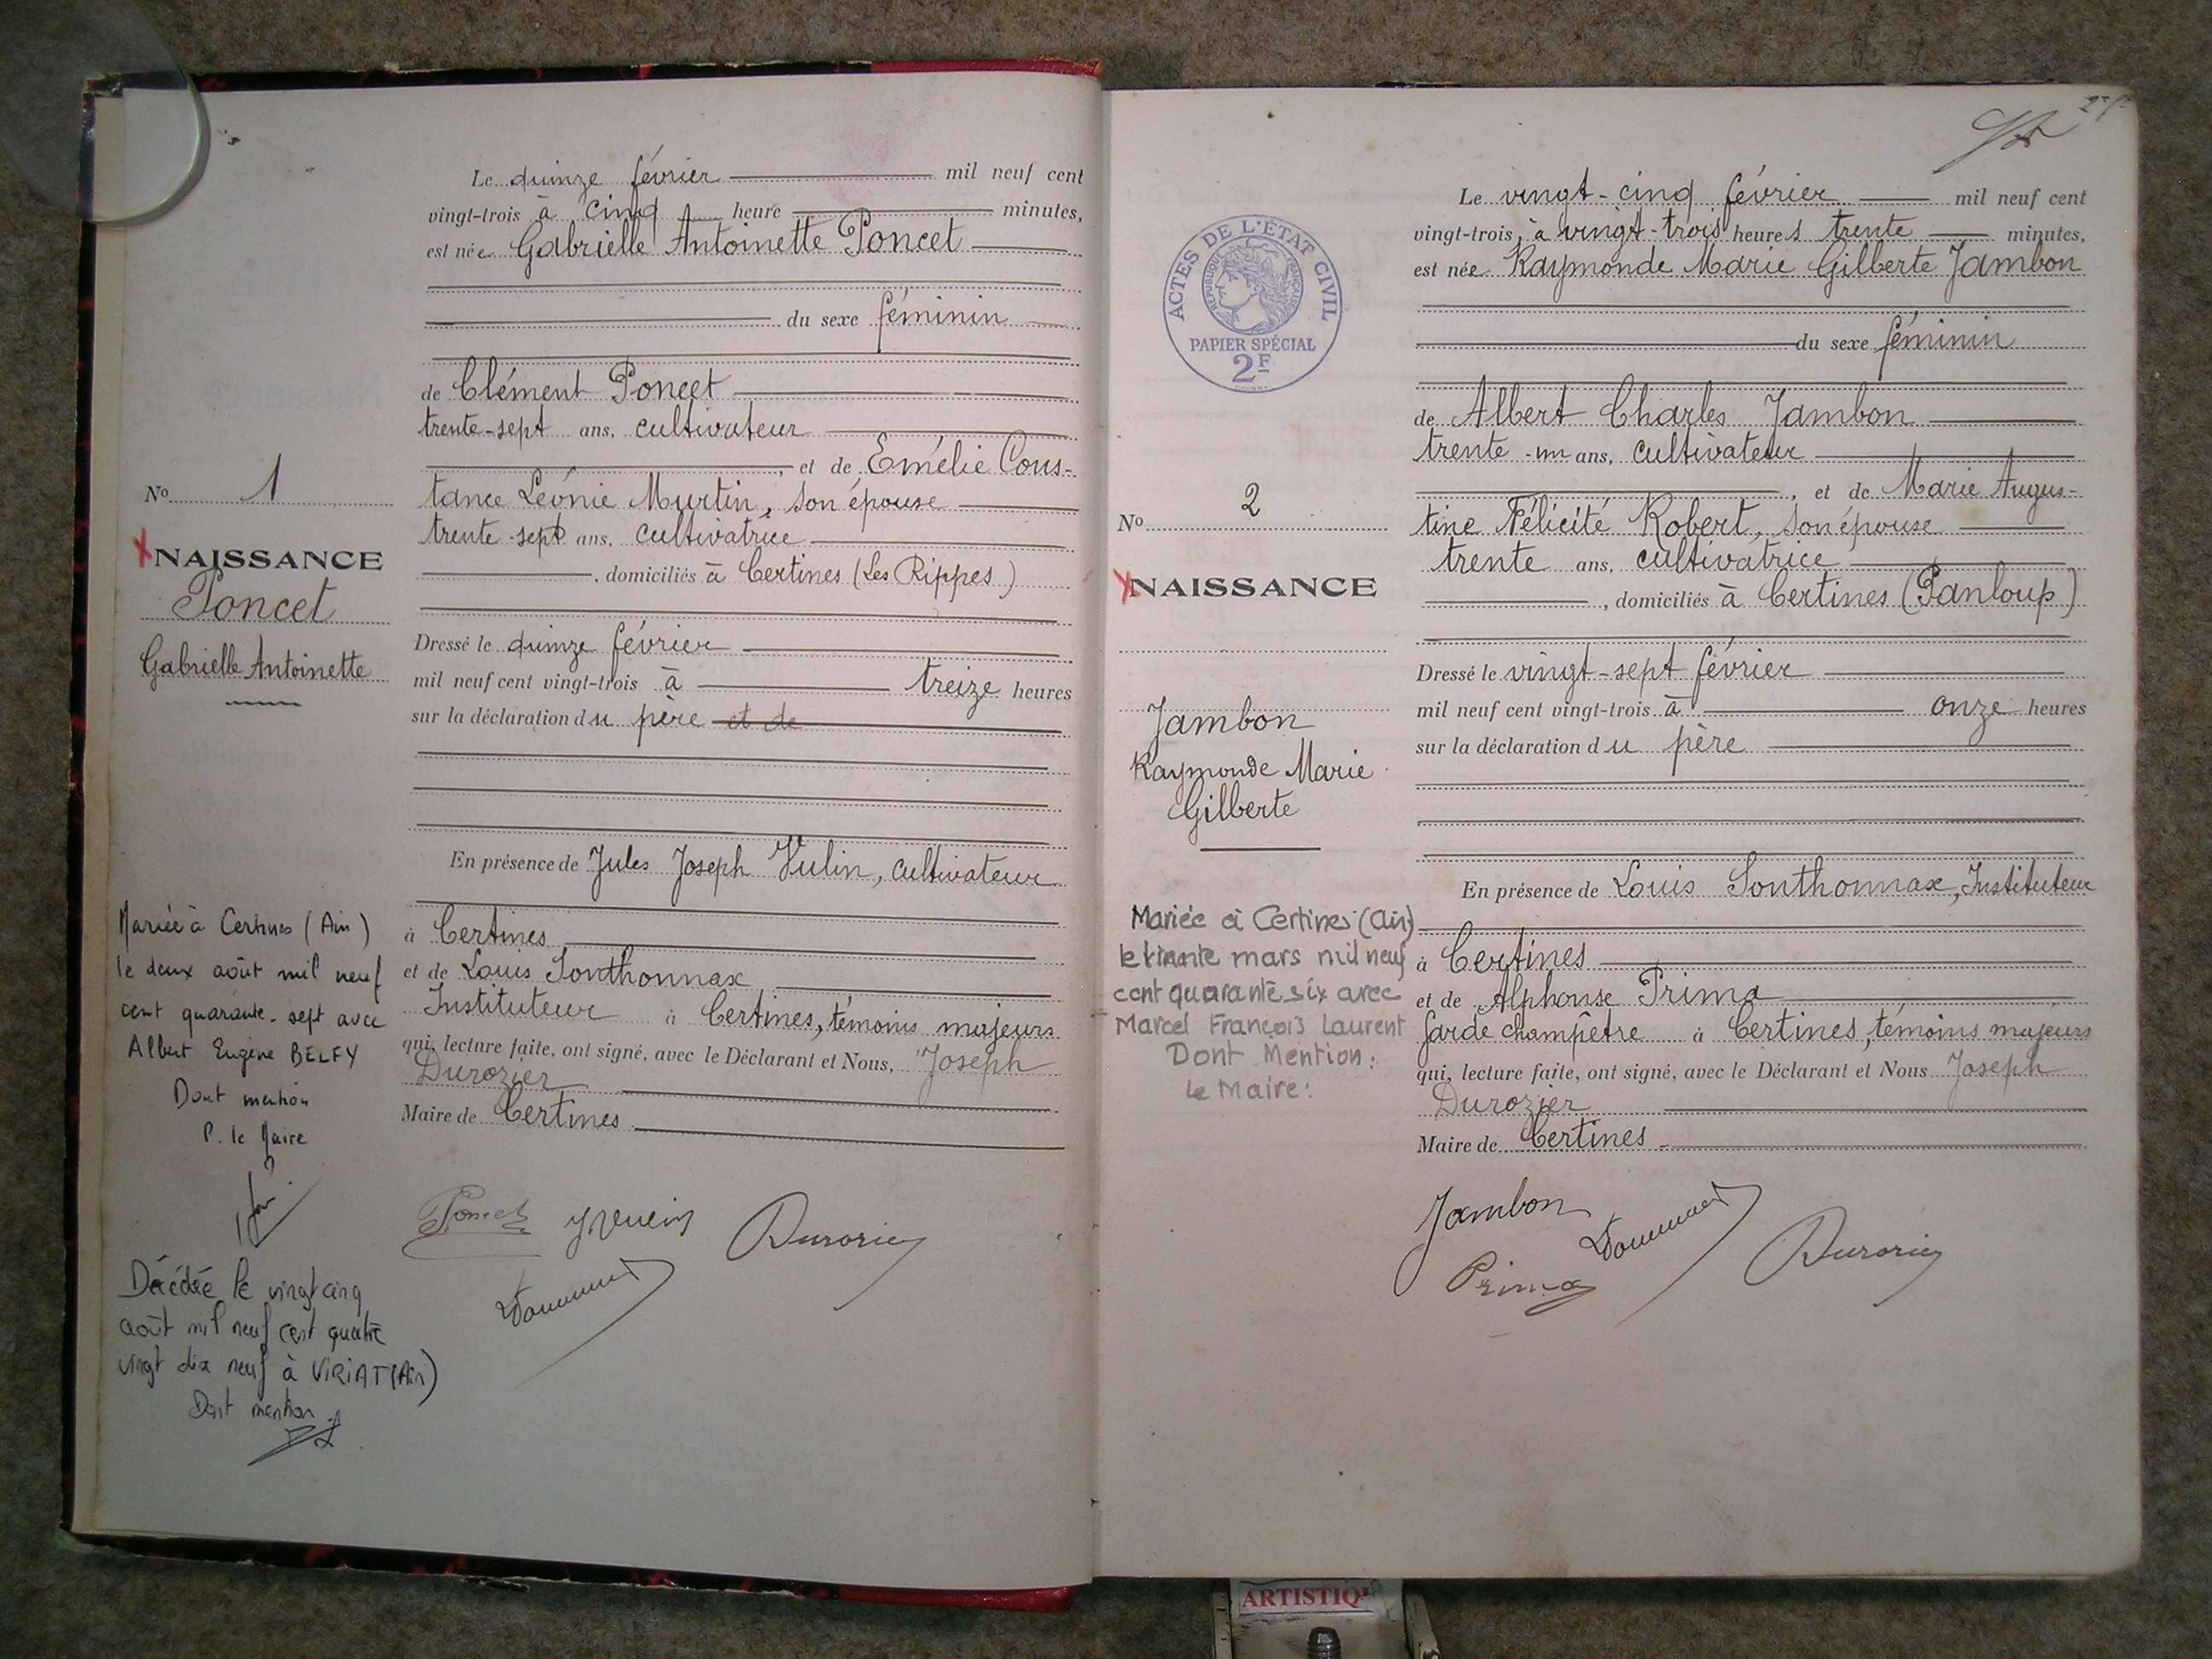 Le quinze février mil neuf cent
vingt-trois à cinq heure minutes,
est née Gabrielle Antoinette Poncet
du sexe féminin
de Clément Poncet
trente-sept ans, cultivateur
, et de Emélie Cons-
tance Léonie Murtin, son épouse
trente-sept ans, cultivatrice
, domiciliés à Certines (Les Rippes)
Dressé le quinze février
mil neuf cent vingt-trois à treize heures
sur la déclaration du père et de
En présence de Jules Joseph Vulin, cultivateur
à Certines
et de Louis Sonthonnax
Instituteur à Certines, témoins majeurs
qui, lecture faite, ont signé, avec le Déclarant et Nous, Joseph
Durozier
Maire de Certines
Poncet
Durozier
No 1
NAISSANCE
Poncet
Gabrielle Antoinette
Mariée à Certines (Ain)
le deux août mil neuf
cent quarante-sept avec
Albert Eugène BELFY
Dont mention
P. le Maire
Décédée le vingt cinq
août mil neuf cent quatre
vingt dix neuf à VIRIAT (Ain)
Dont mention
ACTES DE L'ÉTAT CIVIL
RÉPUBLIQUE FRANÇAISE
PAPIER SPÉCIAL
2F
Le vingt-cinq février mil neuf cent
vingt-trois, à vingt-trois heures trente minutes,
est née Raymonde Marie Gilberte Jambon
du sexe féminin
de Albert Charles Jambon
trente-un ans, cultivateur
, et de Marie Augus-
tine Félicité Robert, son épouse
trente ans, cultivatrice
, domiciliés à Certines (Panloup)
Dressé le vingt-sept février
mil neuf cent vingt-trois à onze heures
sur la déclaration du père
En présence de Louis Sonthonnax, Instituteur
à Certines
et de Alphonse Prima
Garde champêtre à Certines, témoins majeurs
qui, lecture faite, ont signé, avec le Déclarant et Nous Joseph
Durozier
Maire de Certines
Jambon
Prima
Durozier
No 2
NAISSANCE
Jambon
Raymonde Marie
Gilberte
Mariée à Certines (Ain)
le trente mars mil neuf
cent quarante six avec
Marcel François Laurent
Dont Mention:
Le Maire:
ARTISTIQ